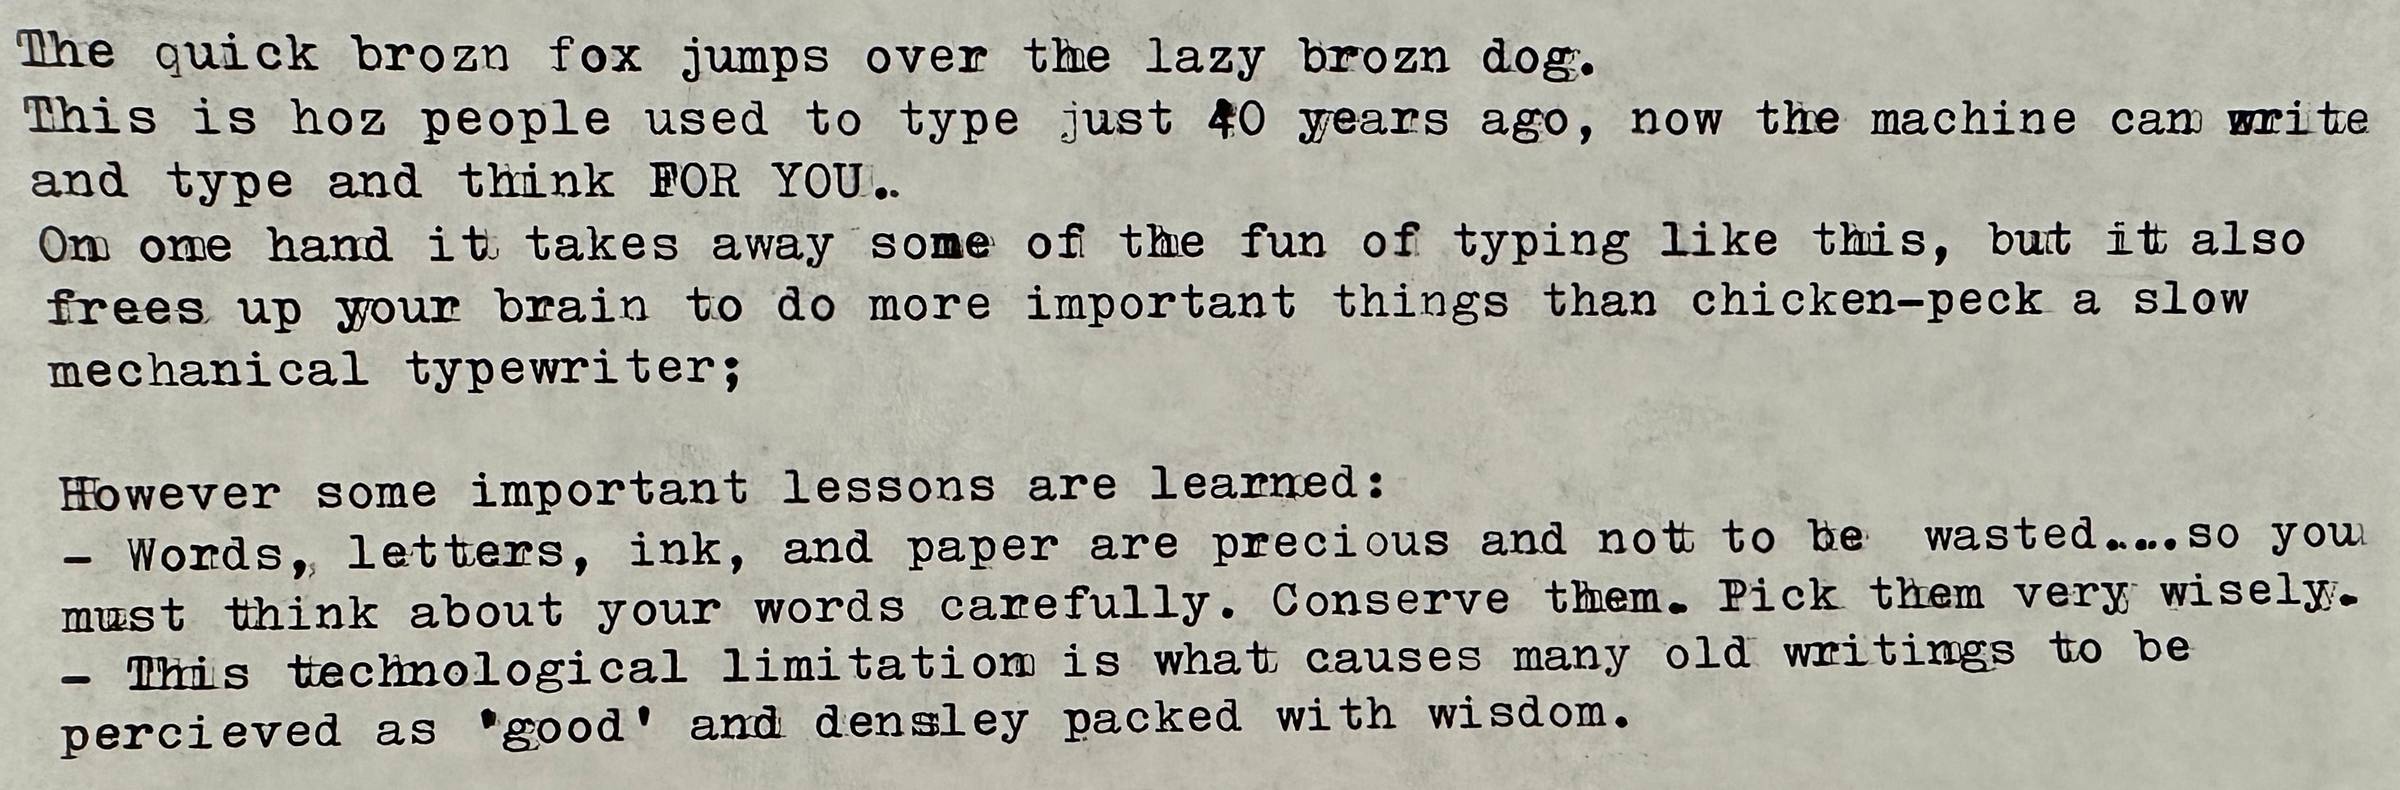 The quick brozn fox jumps over the lazy brozn dog.
This is hoz people used to type just 40 years ago, now the machine can write
and type and think FOR YOU..
On one hand it takes away some of the fun of typing like this, but it also
frees up your brain to do more important things than chicken-peck a slow
mechanical typewriter;
However some important lessons are learned:
- Words, letters, ink, and paper are precious and nott to be  wasted.....so you
must think about your words carefully. Conserve them. Pick them very wisely.
- This technological limitation is what causes many old writings to be
percieved as 'good' and densley packed with wisdom.